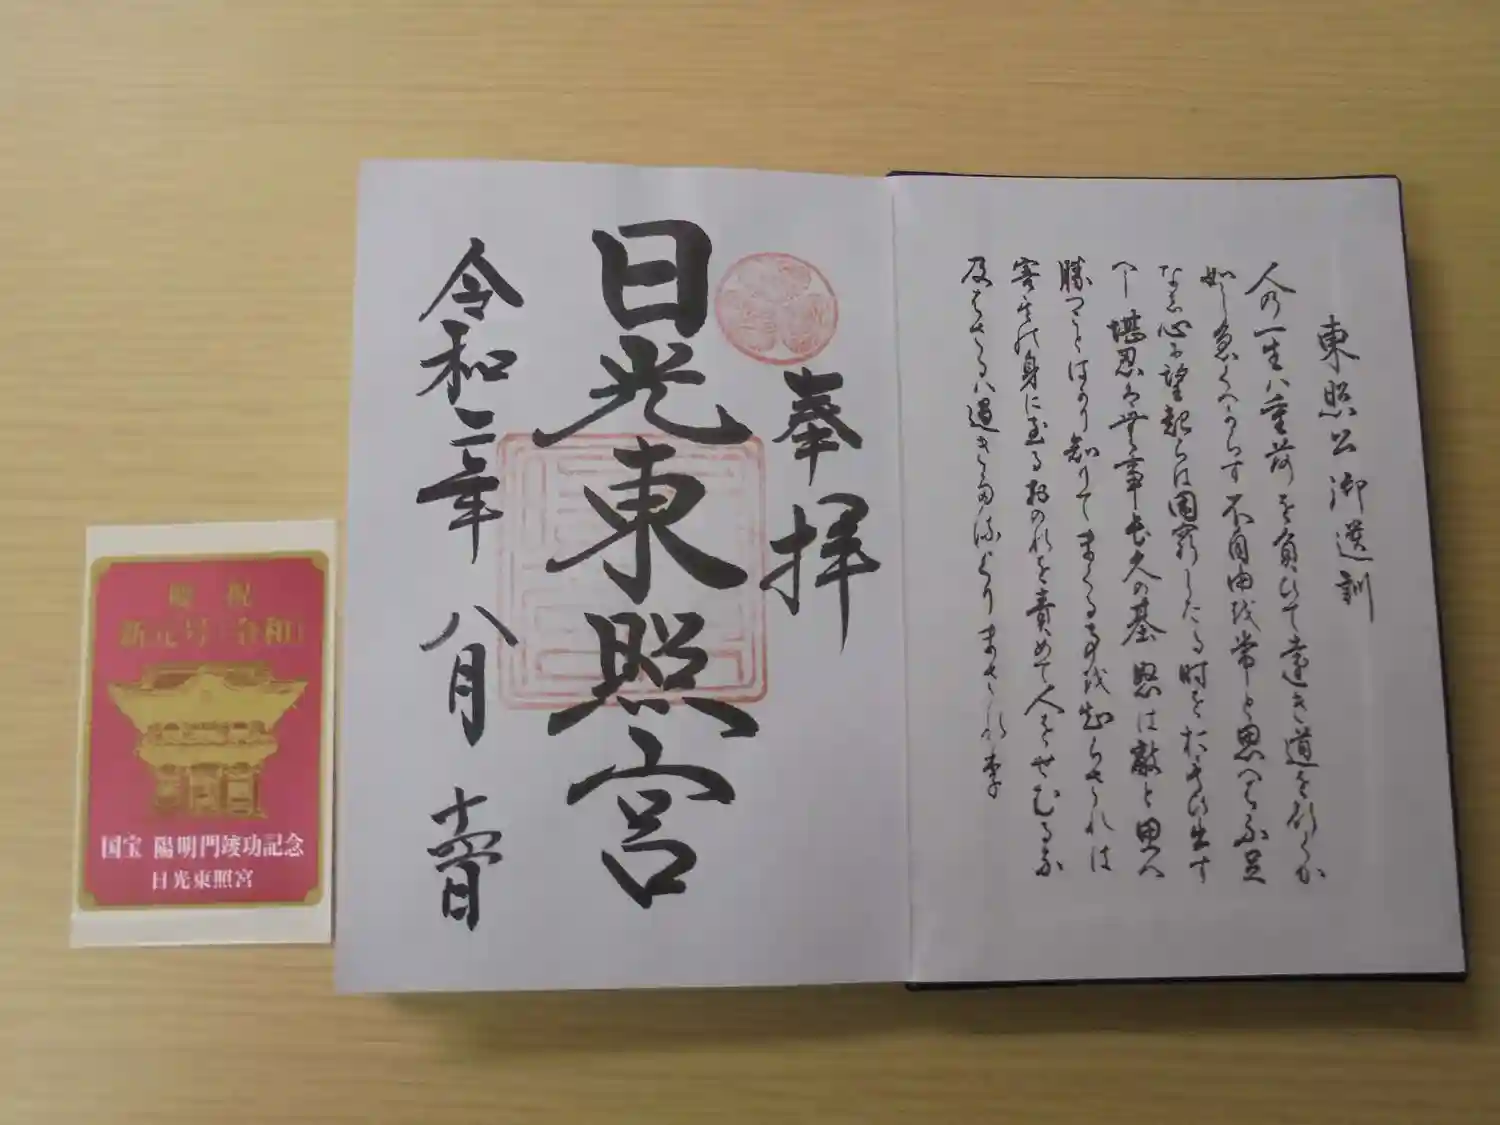 東照公御遺訓
人の一生ハ重荷を負ひて遠き道を行くか
如し急くへからす不自由を常と思へハ不足
なし心に望起らは困窮したる時をおもひ出す
へし堪忍は無事長久の基 怒は敵と思へ
勝つことはかり知りてまくる事を知らされは
害其の身に至るおのれを責めて人をせむるな
及はさるハ過きたるよりまされり
奉拝
日光東照宮
令和二年 八月 十四日
慶祝
新元号「令和」
国宝 陽明門竣功記念
日光東照宮